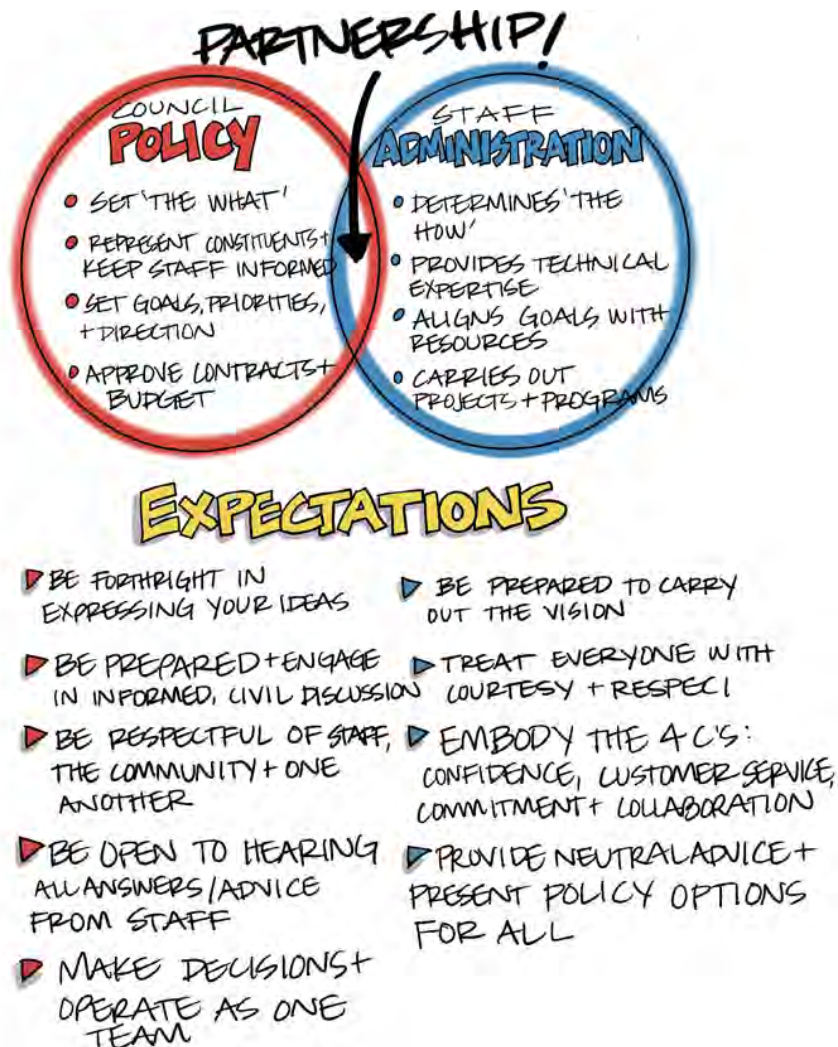 PARTNERSHIP!
COUNCIL
POLICY
• SET 'THE WHAT'
• REPRESENT CONSTITUENTS+
KEEP STAFF INFORMED
• SET GOALS, PRIORITIES,
+ DIRECTION
• APPROVE CONTRACTS+
BUDGET
STAFF
ADMINISTRATION
• DETERMINES 'THE
HOW'
• PROVIDES TECHNICAL
EXPERTISE
• ALIGNS GOALS WITH
RESOURCES
• CARRIES OUT
PROJECTS + PROGRAMS
EXPECTATIONS
BE FORTHRIGHT IN
EXPRESSING YOUR IDEAS
BE PREPARED + ENGAGE
IN INFORMED, CIVIL DISCUSSION
BE RESPECTFUL OF STAFF,
THE COMMUNITY + ONE
ANOTHER
BE OPEN TO HEARING
ALL ANSWERS/ADVICE
FROM STAFF
MAKE DECISIONS+
OPERATE AS ONE
TEAM
BE PREPARED TO CARRY
OUT THE VISION
TREAT EVERYONE WITH
COURTESY + RESPECT
EMBODY THE 4 C'S:
CONFIDENCE, CUSTOMER SERVICE,
COMMITMENT + COLLABORATION
PROVIDE NEUTRAL ADVICE +
PRESENT POLICY OPTIONS
FOR ALL